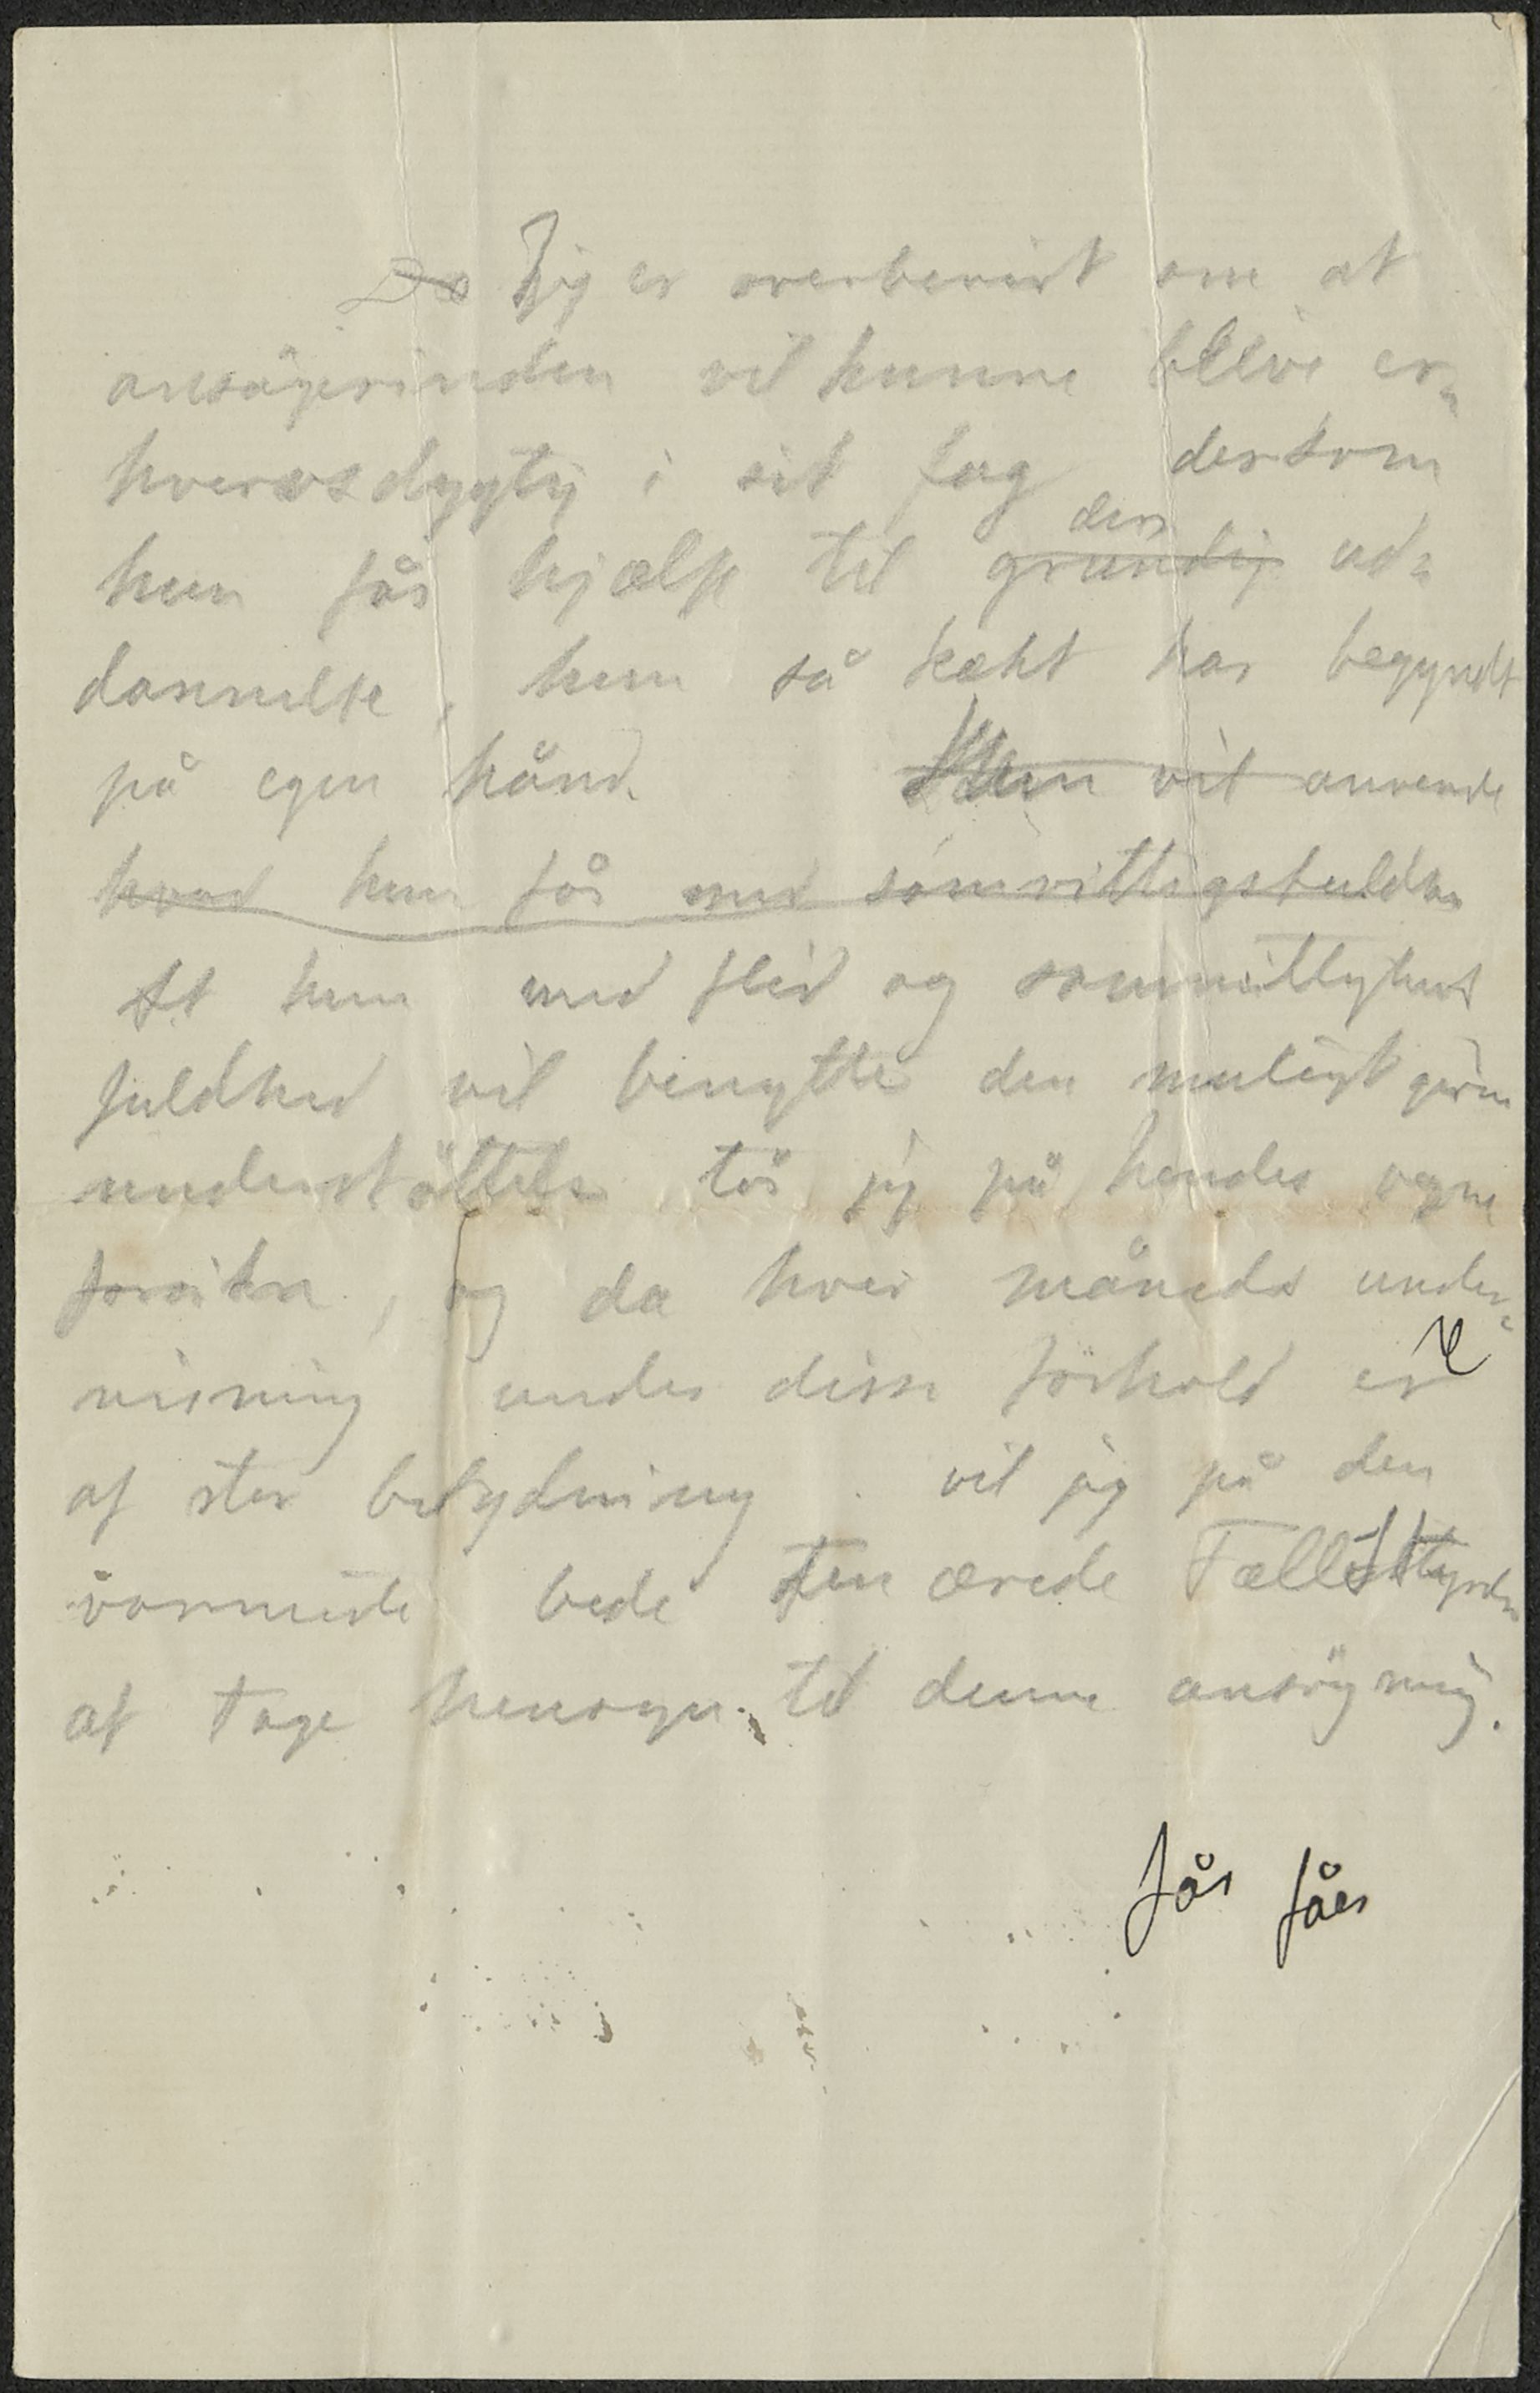 Jeg er overbevist om at
ansøgerinden vil kunne blive er=
hvervsdygtig i sit fag dersom
den
hun får hjælp til grundig ud=
dannelse, hun så kækt har begyndt
på egen hånd. Hun vil anvende
hvad hun får med samvittigsfuldhe
At hun med flid og samvittighets
fuldhed vil benytte den muligt givne
understøttelse tør jeg på hendes vegne
forsikre, og da hver måneds under=
visning under disse forhold er
af stor betydning. vil jeg på den
varmeste bede den ærede Fællesstyrelse
at tage hensyn til denne ansøgning.
får fåer